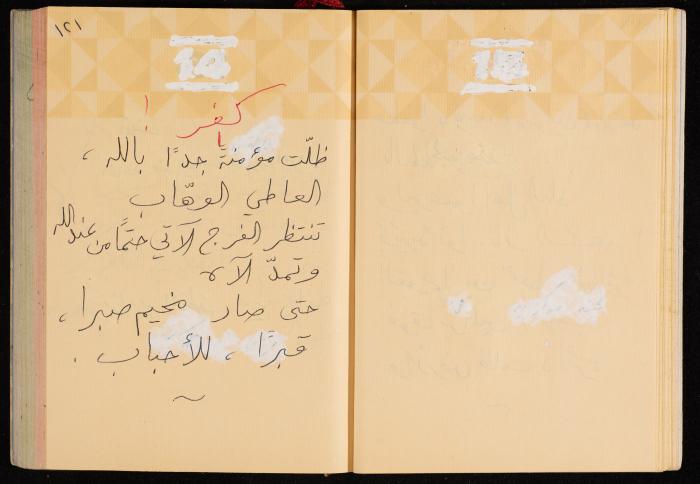 ١٢١
14
كفر !
ظلّت مؤمنةً جدًا بالله ،
العاطي الوهّاب
تنتظر الفرج الآتي حتمًا من عند الله
وتمدّ الآه
حتى صار مخيم صبرا ،
قبرًا ، للأحباب .
~